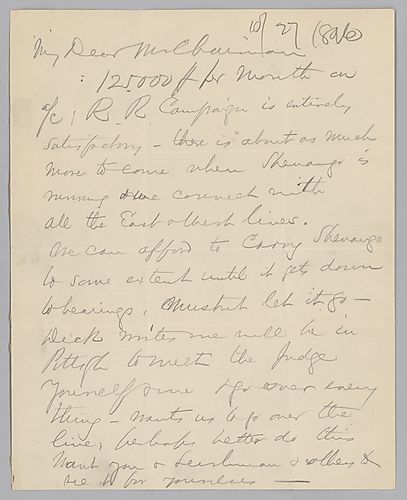 10/27 1896
My Dear Mr Chairman
: 125.000 $ per month on
a/c, R. R. Campaign is entirely
satisfactory - there is about as much
more to come when Shenango is
running & we connect with
all the East & West lines.
We can afford to Carry Shenango
to some extent until it gets down
to bearings, Mustnt let it go -
Dick writes me will be in
Pittsgh to meet the Judge
Yourself & me & go over every
thing - wants us to go over the
line, perhaps better do this
Want you & Leishman & others to
see it for yourselves —